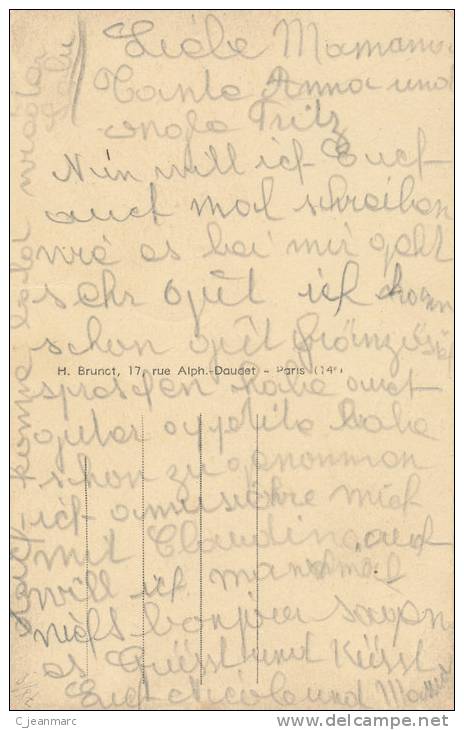 Liebe Mamama
Tante Anna und
Onkle Fritz
Nun will ich Euch
auch mal schreiben
wie es bei mir geht
sehr gut ich kann
schon gut französisch
H. Brunot, 17, rue Alph.-Daudet - Paris (14e)
sprechen habe auch
guten appetite habe
schon zu genommen
ich amusiere mich
mit Claudine, auch
will ich manchmal
nicht bonjour sagen
es Grüsst und Küsst
Euch Nicole und Mama
komme bald wieder
C jeanmarc
www.delcampe.net